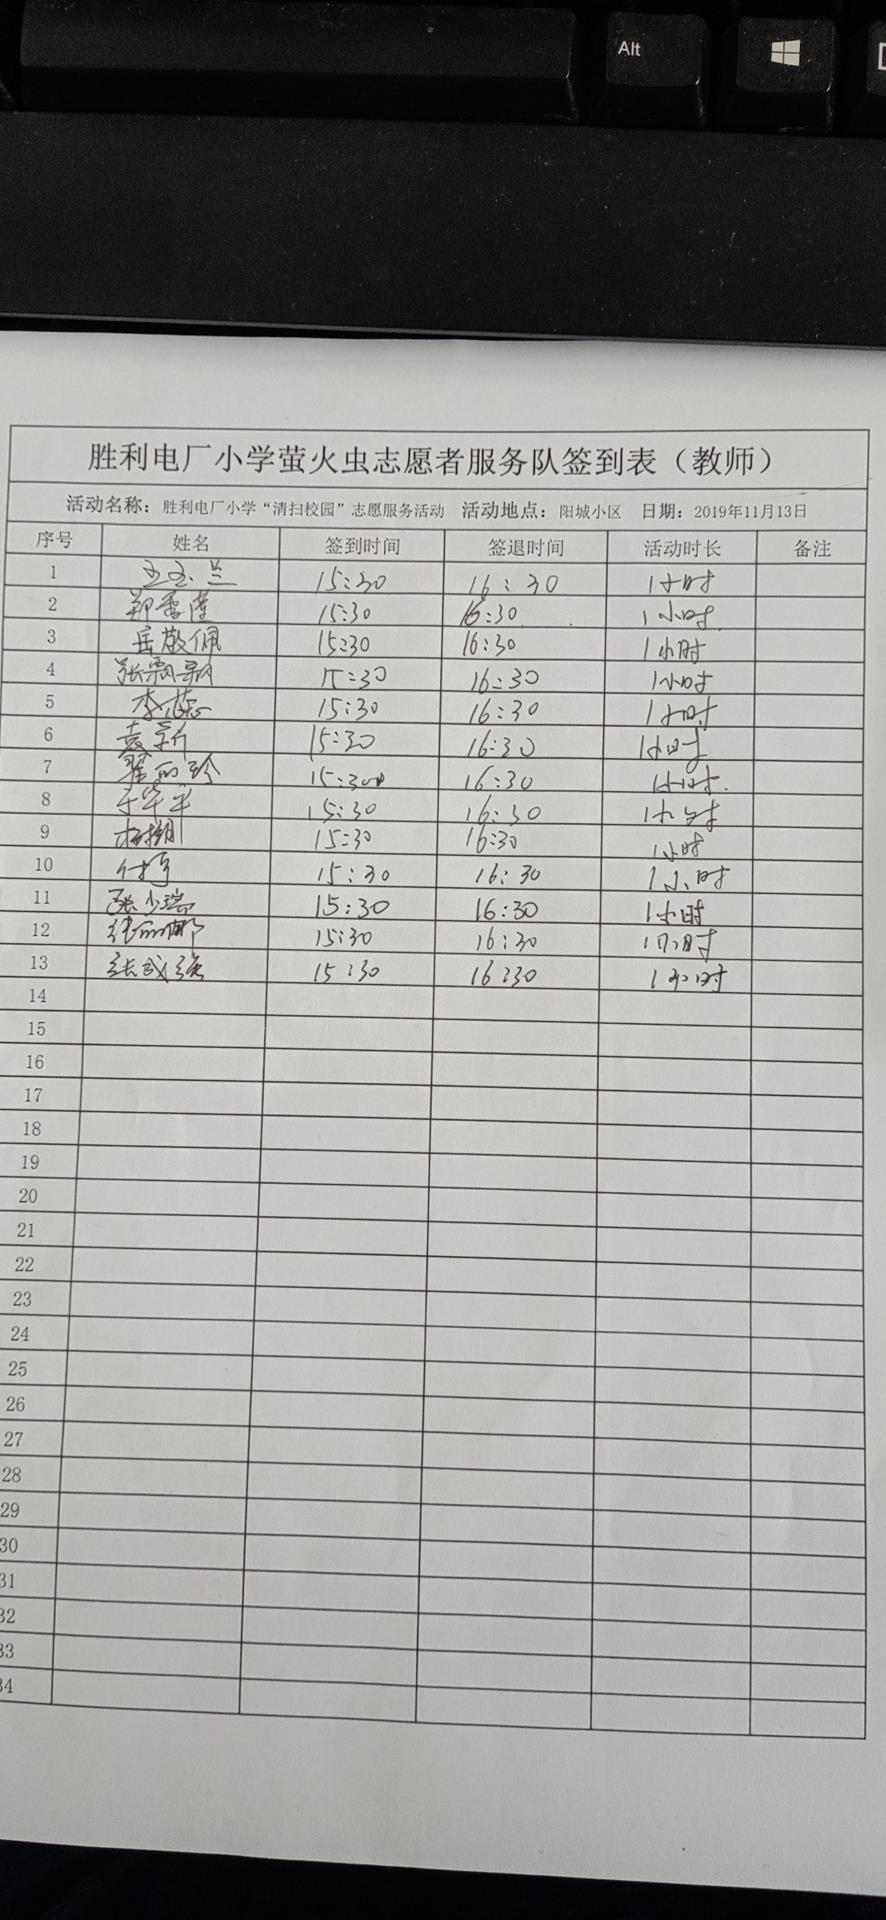 Alt
胜利电厂小学萤火虫志愿者服务队签到表（教师）
活动名称：胜利电厂小学“清扫校园”志愿服务活动 活动地点：阳城小区 日期：2019年11月13日
序号 姓名 签到时间 签退时间 活动时长 备注
1 王玉兰 15:30 16:30 1小时
2 郑雪莲 15:30 16:30 1小时
3 岳敬佩 15:30 16:30 1小时
4 张飘飘 15:30 16:30 1小时
5 李蕊 15:30 16:30 1小时
6 袁新 15:30 16:30 1小时
7 翟丽珍 15:30 16:30 1小时.
8 于华平 15:30 16:30 1小时
9 15:30 16:30 1小时
10 付宁 15:30 16:30 1小时
11 张少瑞 15:30 16:30 1小时
12 15:30 16:30 1小时
13 张成强 15:30 16:30 1小时
14
15
16
17
18
19
20
21
22
23
24
25
26
27
28
29
30
31
32
33
34